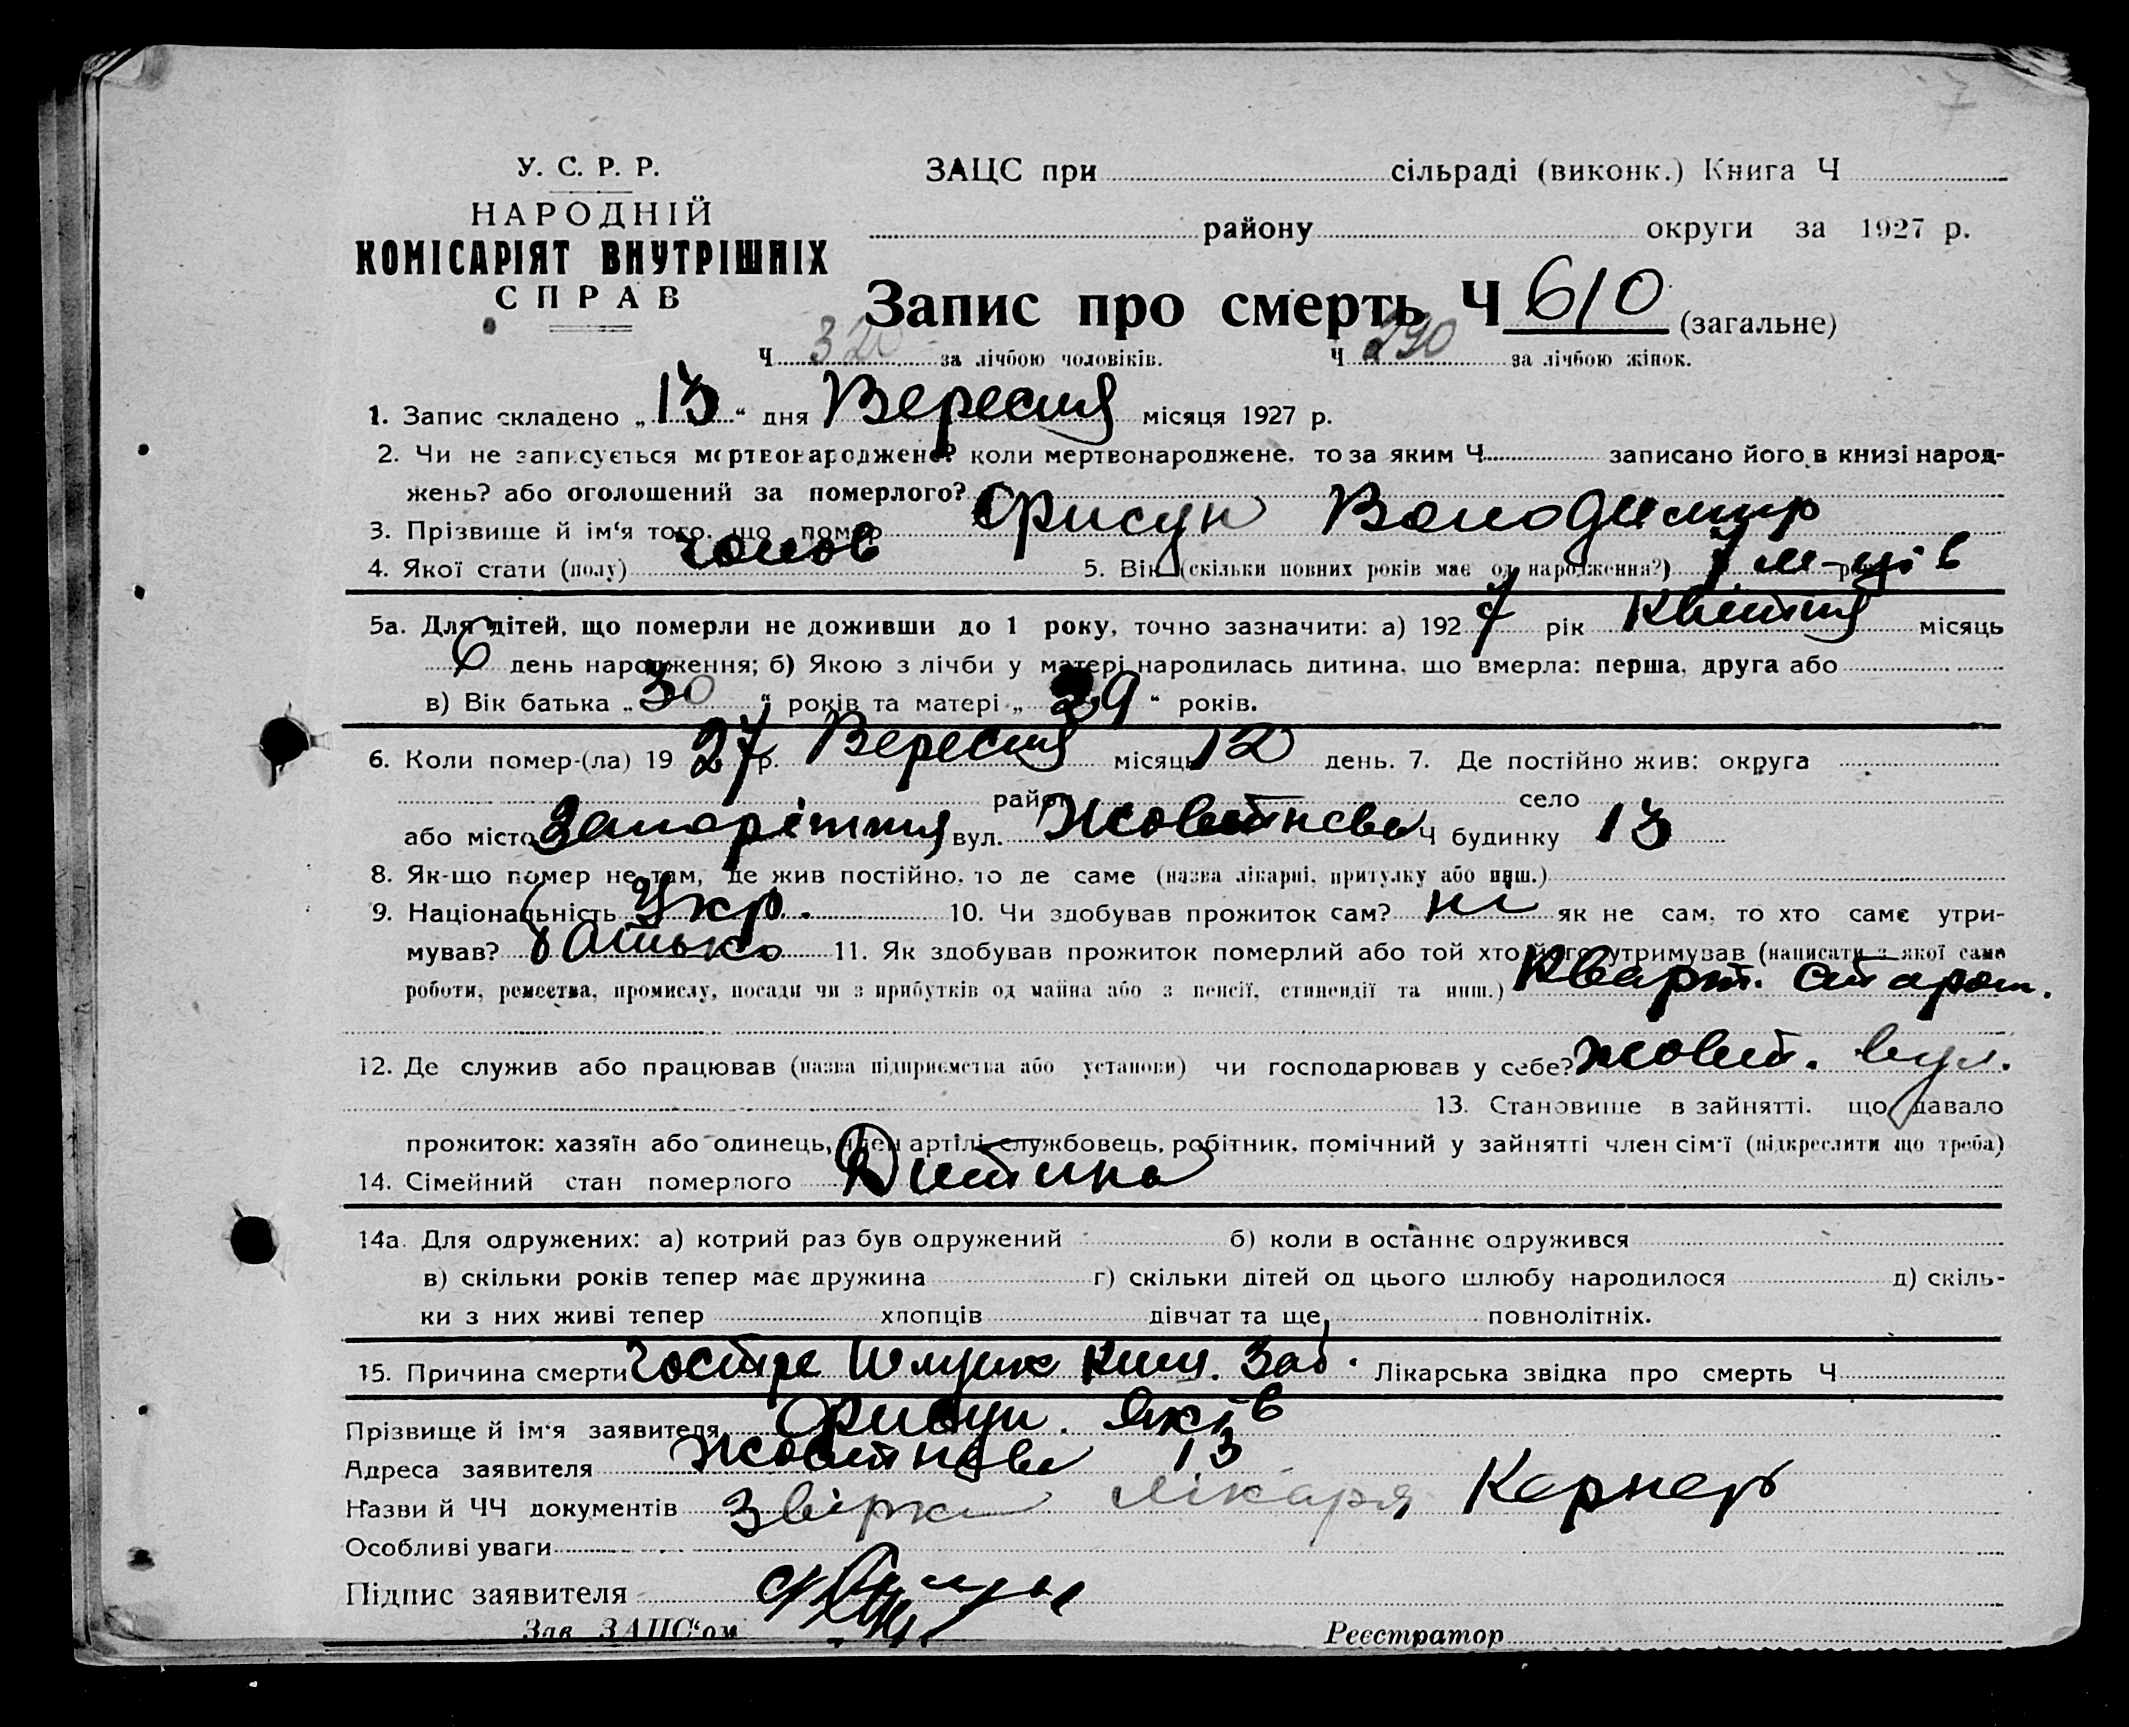 7
У. С. Р. Р.
НАРОДНІЙ
КОМІСАРІЯТ ВНУТРІШНІХ
СПРАВ
ЗАЦС при сільраді (виконк.) Книга Ч
району округи за 1927 р.
Запис про смерть Ч 610 (загальне)
Ч 320 за лічбою чоловіків. Ч 290 за лічбою жінок.
1. Запис складено „13“ дня Вересня місяця 1927 р.
2. Чи не записується мертвонароджене? коли мертвонароджене, то за яким Ч записано його в книзі народ-
жень? або оголошений за померлого?
3. Прізвище й ім‘я того, що помер Орисун Володимир
4. Якої стати (полу) чолов 5. Вік (скільки повних років має од народження?) м-ців
5а. Для дітей, що померли не доживши до 1 року, точно зазначити: а) 1927 рік Квітня місяць
6 день народження; б) Якою з лічби у матері народилась дитина, що вмерла: перша, друга або
в) Вік батька „30“ років та матері „29“ років.
6. Коли помер-(ла) 1927 р. Вересня місяць 12 день. 7. Де постійно жив: округа
район село
або місто Запоріжжя вул. Жовтнева Ч будинку 13
8. Як-що помер не там, де жив постійно, то де саме (назва лікарні, притулку або инш.)
9. Національність Укр. 10. Чи здобував прожиток сам? ні як не сам, то хто саме утри-
мував? батько 11. Як здобував прожиток померлий або той хто його утримував (написати з якої само
роботи, ремества, промислу, посади чи з прибутків од майна або з пенсії, стипендії та инш.) Кварт. старост.
12. Де служив або працював (назва підприємства або установи) чи господарював у себе? жовт. вул.
13. Становище в зайнятті, що давало
прожиток: хазяїн або одинець, член артілі, службовець, робітник, помічний у зайнятті член сім‘ї (підкреслити що треба)
14. Сімейний стан померлого Дитина
14а. Для одружених: а) котрий раз був одружений б) коли в останнє одружився
в) скільки років тепер має дружина г) скільки дітей од цього шлюбу народилося д) скіль-
ки з них живі тепер хлопців дівчат та ще повнолітніх.
15. Причина смерти гостре шлунк киш. заб. Лікарська звідка про смерть Ч
Прізвище й ім‘я заявителя Орисун Яків
Адреса заявителя Жовтнева 13
Назви й ЧЧ документів лікаря
Особливі уваги
Підпис заявителя
Зав. ЗАЦС‘ом Реєстратор